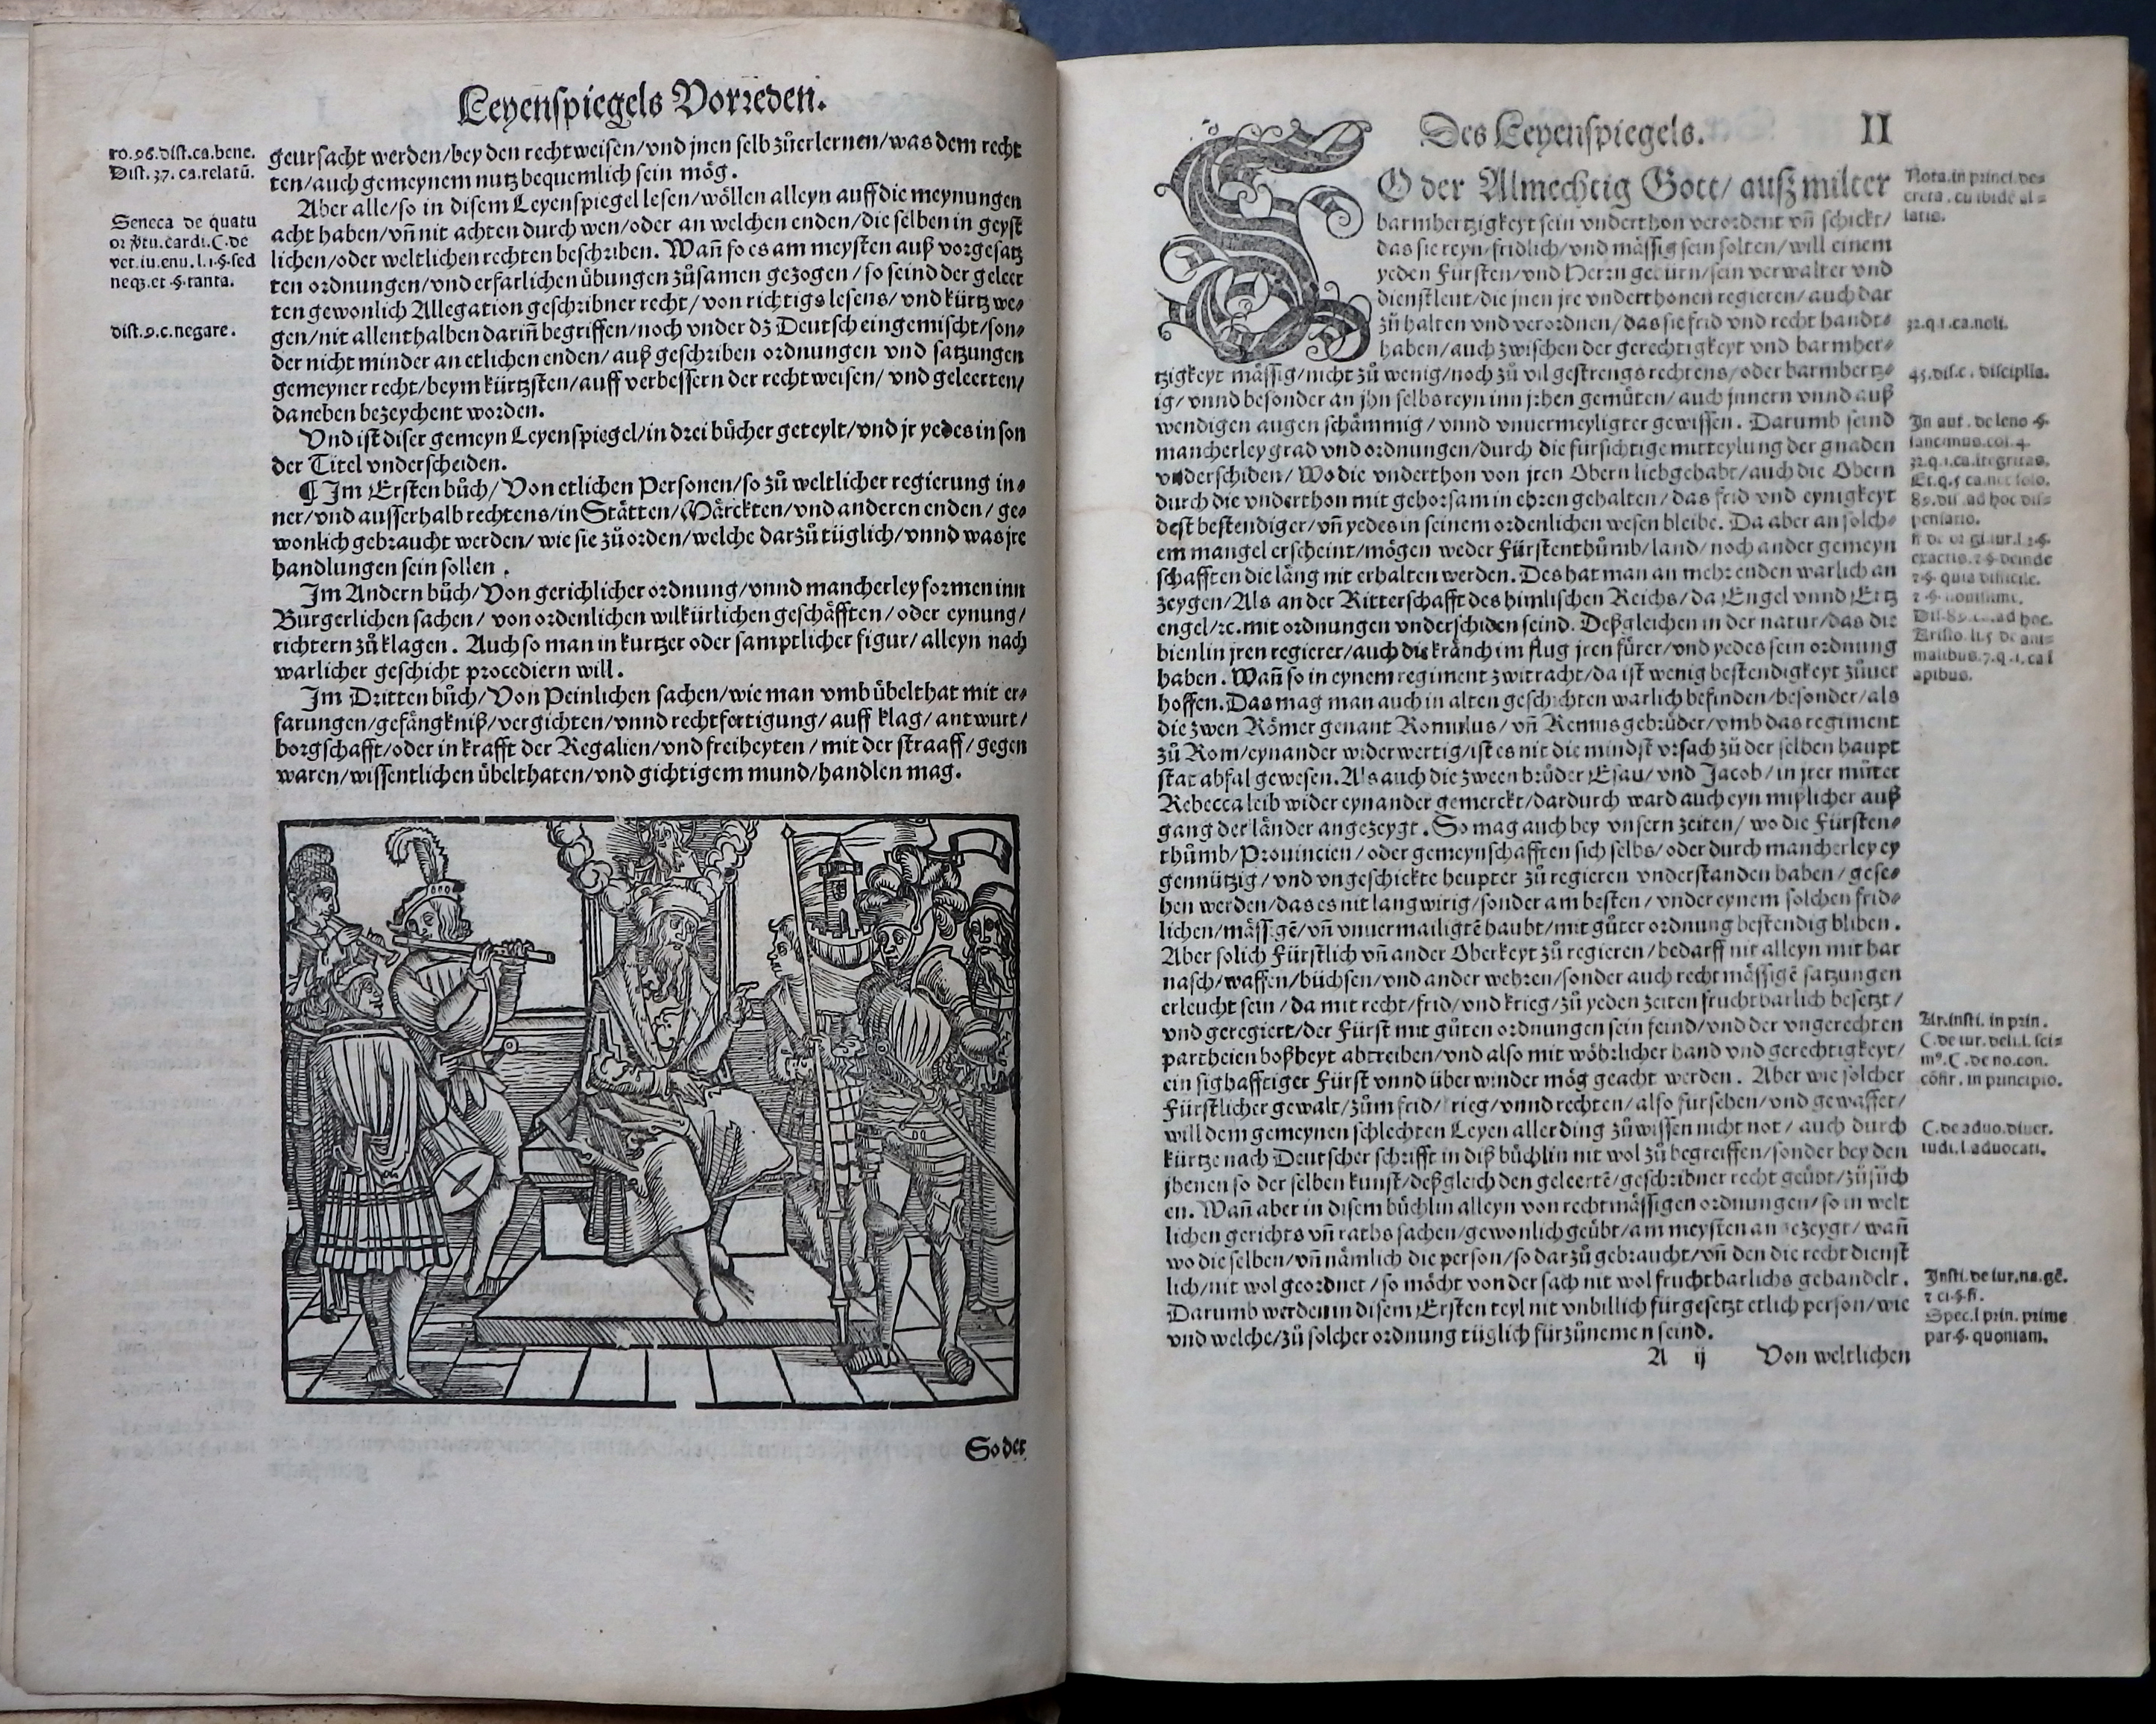 Leyenspiegels Vorreden.
ro.96.dist.ca.bene.
Dist.37.ca.relatū.
Seneca de quatu
vet.iu.enu.l.1.§.sed
neq3.et.§.tanta.
dist.9.c.negare.
geursacht werden/bey den rechtweisen/vnd jnen selb zůerlernen/was dem recht
ten/auch gemeynem nutz bequemlich sein mög.
Aber alle/so in disem Leyenspiegel lesen/wöllen alleyn auff die meynungen
acht haben/vñ nit achten durch wen/oder an welchen enden/die selben in geyst
lichen/oder weltlichen rechten beschriben. Wañ so es am meysten auß vorgesatz
ten ordnungen/vnd erfarlichen übungen zůsamen gezogen/so seind der geleer
ten gewonlich Allegation geschribner recht/von richtigs lesens/vnd kürtz we⸗
gen/nit allenthalben dariñ begriffen/noch vnder dz Deutsch eingemischt/son⸗
der nicht minder an etlichen enden/auß geschriben ordnungen vnd satzungen
gemeyner recht/beym kürtzsten/auff verbessern der rechtweisen/vnd geleerten/
daneben bezeychent worden.
Vnd ist diser gemeyn Leyenspiegel/in drei bücher geteylt/vnd jr yedes in son
der Titel vnderscheiden.
¶ Im Ersten bůch/Von etlichen Personen/so zů weltlicher regierung in⸗
ner/vnd ausserhalb rechtens/in Stätten/Märckten/vnd anderen enden/ge⸗
wonlich gebraucht werden/wie sie zů orden/welche darzů tüglich/vnnd was jre
handlungen sein sollen.
Im Andern bůch/Von gerichlicher ordnung/vnnd mancherley formen inn
Burgerlichen sachen/von ordenlichen wilkürlichen geschäfften/oder eynung/
richtern zů klagen. Auch so man in kurtzer oder samptlicher figur/alleyn nach
warlicher geschicht procediern will.
Im Dritten bůch/Von Peinlichen sachen/wie man vmb übelthat mit er⸗
farungen/gefängkniß/vergichten/vnnd rechtfertigung/auff klag/antwurt/
borgschafft/oder in krafft der Regalien/vnd freiheyten/mit der straaff/gegen
waren/wissentlichen übelthaten/vnd gichtigem mund/handlen mag.
So der
Des Leyenspiegels. II
SO der Almechtig Gott/auß milter
barmhertzigkeyt sein vnderthon verordent vñ schickt/
das sie reyn/fridlich/vnd mässig sein solten/will einem
yeden Fürsten/vnd Herrn gebürn/sein verwalter vnd
dienstleut/die jnen jre vnderthonen regieren/auch dar
zů halten vnd verordnen/das sie frid vnd recht handt⸗
haben/auch zwischen der gerechtigkeyt vnd barmher⸗
tzigkeyt mässig/nicht zů wenig/noch zů vil gestrengs rechtens/oder barmhertz⸗
ig/vnnd besonder an jhn selbs reyn inn jrhen gemüten/auch jnnern vnnd auß
wendigen augen schämmig/vnnd vnuermeyligter gewissen. Darumb seind
mancherley grad vnd ordnungen/durch die fürsichtige mitteylung der gnaden
vnderschiden/Wo die vnderthon von jren Obern liebgehabt/auch die Obern
durch die vnderthon mit gehorsam in ehren gehalten/das frid vnd eynigkeyt
dest bestendiger/vñ yedes in seinem ordenlichen wesen bleibe. Da aber an solch⸗
em mangel erscheint/mögen weder Fürstenthůmb/land/noch ander gemeyn
schafften die läng nit erhalten werden. Des hat man an mehr enden warlich an
zeygen/Als an der Ritterschafft des himlischen Reichs/da Engel vnnd Ertz
engel/ꝛc. mit ordnungen vnderschiden seind. Deßgleichen in der natur/das die
bienlin jren regierer/auch die kränch im flug jren fürer/vnd yedes sein ordnung
haben. Wañ so in eynem regiment zwitracht/da ist wenig bestendigkeyt zůuer
hoffen. Das mag man auch in alten geschichten warlich befinden/besonder/als
die zwen Römer genant Romulus/vñ Remus gebrůder/vmb das regiment
zů Rom/eynander widerwertig/ist es nit die mindst vrsach zů der selben haupt
stat abfal gewesen. Als auch die zween brůder Esau/vnd Jacob/in jrer můter
Rebecca leib wider eynander gemerckt/dardurch ward auch eyn mißlicher auß
gang der länder angezeygt. So mag auch bey vnsern zeiten/wo die Fürsten⸗
thůmb/Prouincien/oder gemeynschafften sich selbs/oder durch mancherley ey
gennützig/vnd vngeschickte heupter zů regieren vnderstanden haben/gese⸗
hen werden/das es nit langwirig/sonder am besten/vnder eynem solchen frid⸗
lichen/mässigē/vñ vnuermailigtē haubt/mit gůter ordnung bestendig bliben.
Aber solich Fürstlich vñ ander Oberkeyt zů regieren/bedarff nit alleyn mit har
nasch/waffen/büchsen/vnd ander wehren/sonder auch rechtmässigē satzungen
erleucht sein/da mit recht/frid/vnd krieg/zů yeden zeiten fruchtbarlich besetzt/
vnd geregiert/der Fürst mit gůten ordnungen sein feind/vnd der vngerechten
partheien boßheyt abtreiben/vnd also mit wöhrlicher hand vnd gerechtigkeyt/
ein sighafftiger Fürst vnnd überwinder mög geacht werden. Aber wie solcher
Fürstlicher gewalt/zům frid/krieg/vnnd rechten/also fürsehen/vnd gewaffet/
will dem gemeynen schlechten Leyen allerding zů wissen nicht not/auch durch
kürtze nach Deutscher schrifft in diß büchlin nit wol zů begreiffen/sonder bey den
jhenen so der selben kunst/deßgleich den geleertē/geschribner recht geübt/zů sůch
en. Wañ aber in disem büchlin alleyn von rechtmässigen ordnungen/so in welt
lichen gerichts vñ raths sachen/gewonlich geübt/am meysten angezeygt/wañ
wo die selben/vñ nämlich die person/so darzů gebraucht/vñ den die recht dienst
lich/nit wol geordnet/so möcht von der sach nit wol fruchtbarlichs gehandelt.
Darumb werden in disem Ersten teyl nit vnbillich fürgesetzt etlich person/wie
vnd welche/zů solcher ordnung tüglich fürzůnemen seind.
A ij Von weltlichen
Nota.in princi.de⸗
latis.
32.q.1.ca.noli.
45.dis.c. disciplia.
In aut. de leno §.
sancimus.col.4.
32.q.1.ca.itegritas.
Et.q.5 ca.nec solo.
89.dis. ad hoc dis⸗
pensatio.
exactis.2.§.deinde
2.§. quia difficile.
2.§. nouissime.
Dis.89.c.ad hoc.
Aristo.li.5 de ani⸗
malibus.7.q.1.ca i
apibus.
Ar.insti. in prin.
C.de iur. deli.l. sci⸗
m⁹.C. de no.con.
cōfir. in principio.
C.de aduo.diuer.
iudi.l.aduocati.
Insti.de iur.na.gē.
Spec.l prin. prime
par.§. quoniam.